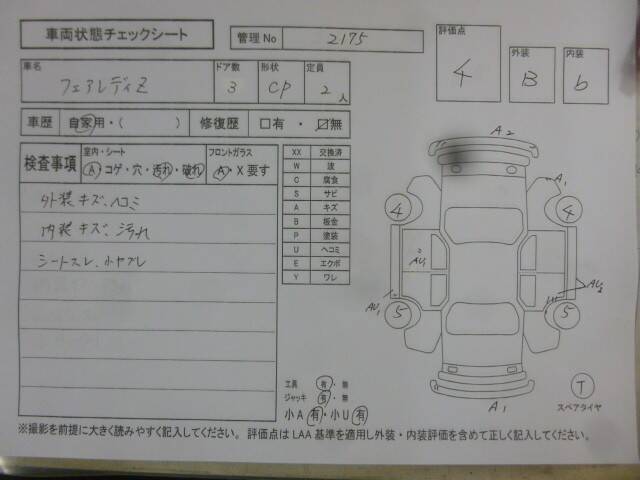 車両状態チェックシート
管理No 2175
評価点 4
外装 B
内装 b
車名 フェアレディZ
ドア数 3
形状 CP
定員 2人
車歴 自家用・( )
修復歴 □有・☑無
検査事項
室内・シート
A・コゲ・穴・汚れ・破れ
フロントガラス
A・X要す
外装キズ、ヘコミ
内装キズ、汚れ
シートスレ、小ヤブレ
XX 交換済
W 波
C 腐食
S サビ
A キズ
B 板金
P 塗装
U ヘコミ
E エクボ
Y ワレ
A2
A1
4
4
AU1
AU1
AU2
5
5
A1
工具 有・無
ジャッキ 有・無
小A 有・小U 有
T
スペアタイヤ
※撮影を前提に大きく読みやすく記入してください。評価点はLAA基準を適用し外装・内装評価を含めて正しく記入してください。